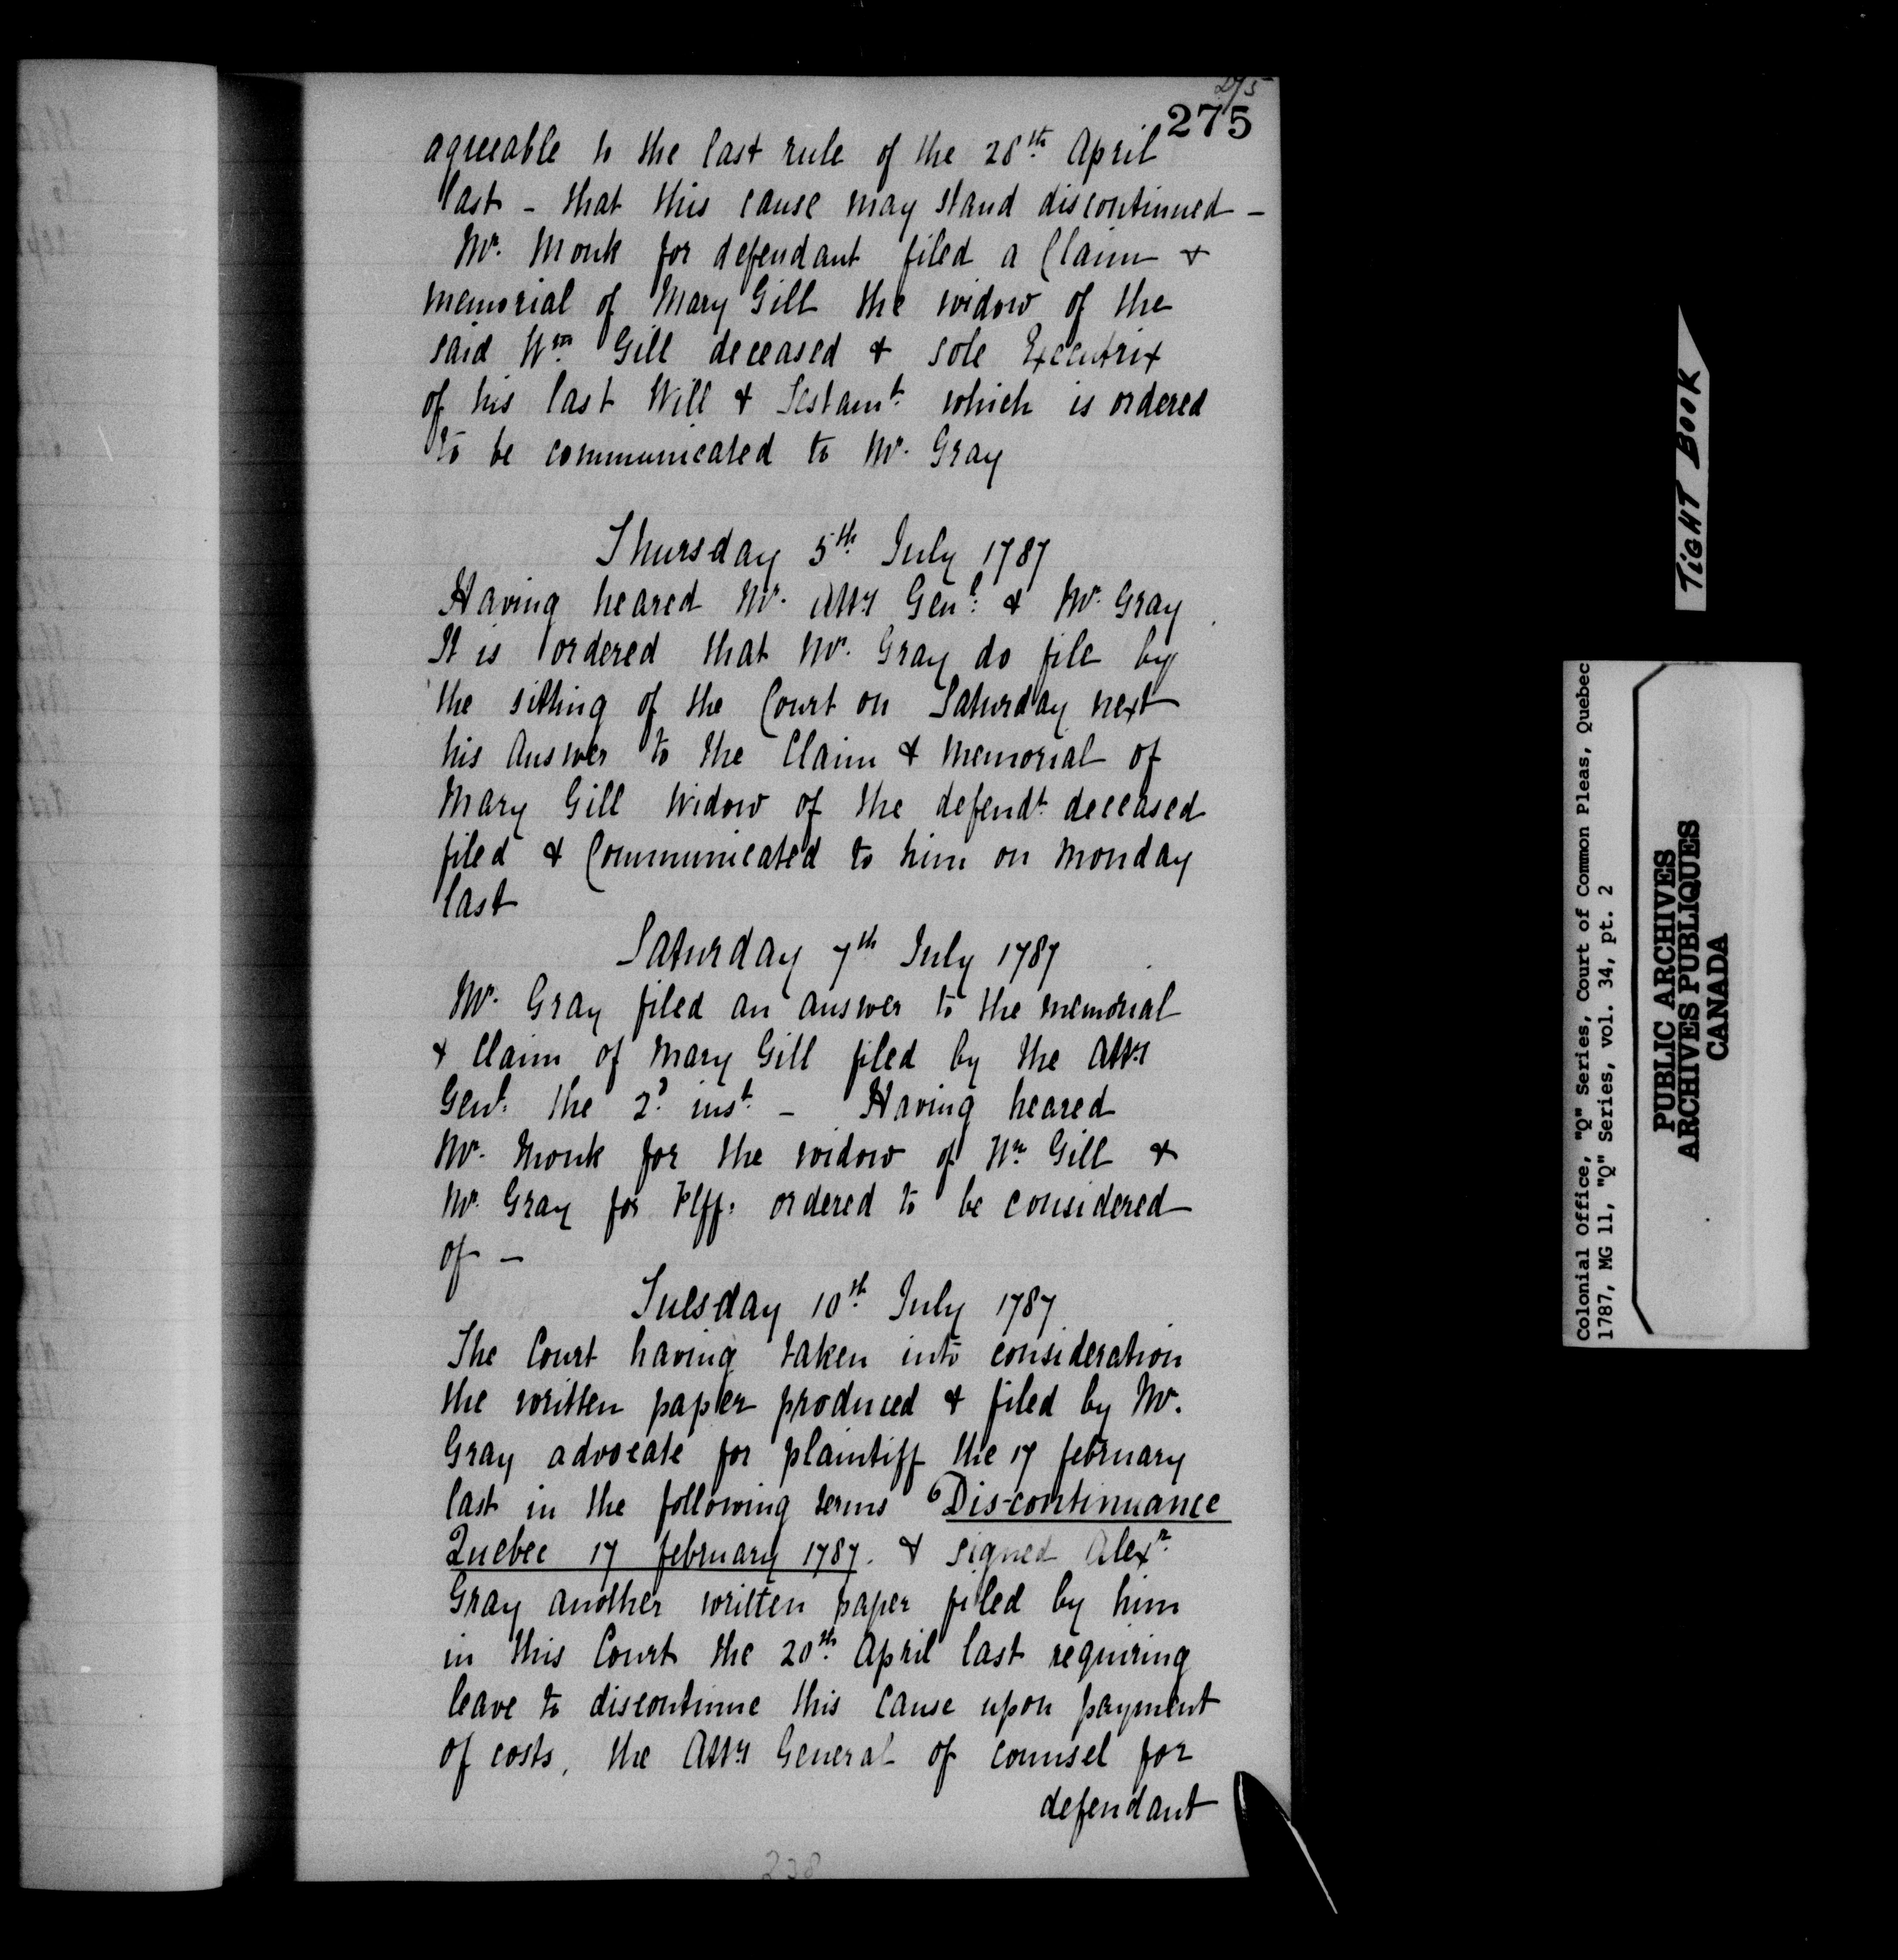 275
275
agreeable to the last rule of the 28th April
last - that this cause may stand discontinued -
Mr. Monk for defendant filed a Claim &
memorial of Mary Gill the widow of the
said Wm Gill deceased & sole Executrix
of his last Will & Testamt. which is ordered
to be communicated to Mr. Gray
Thursday 5th July 1787
Having heared Mr. Atty Genl. & Mr. Gray
It is ordered that Mr. Gray do file by
the sitting of the Court on Saturday next
his Answer to the Claim & Memorial of
Mary Gill Widow of the defendt. deceased
filed & Communicated to him on Monday
last
Saturday 7th July 1787
Mr. Gray filed an answer to the memorial
& Claim of Mary Gill filed by the Atty
Genl. the 2d. inst. - Having heared
Mr. Monk for the widow of Wm Gill &
Mr. Gray for Plff. ordered to be considered
of -
Tuesday 10th July 1787
The Court having taken into consideration
the written paper produced & filed by Mr.
Gray advocate for plaintiff the 17 february
last in the following terms "Dis-continuance
Quebec 17 february 1787. & signed Alexr.
Gray another written paper filed by him
in this Court the 20th. April last requiring
leave to discontinue this cause upon payment
of costs, the Atty General of counsel for
defendant
238
TIGHT BOOK
Colonial Office, "Q" Series, Court of Common Pleas, Quebec
1787, MG 11, "Q" Series, vol. 34, pt. 2
PUBLIC ARCHIVES
ARCHIVES PUBLIQUES
CANADA